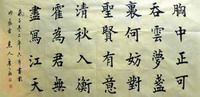 胸中正可
吞雲夢盞
裏何妨對
聖賢有意
清秋入衡
霍為君無
盡寫江天